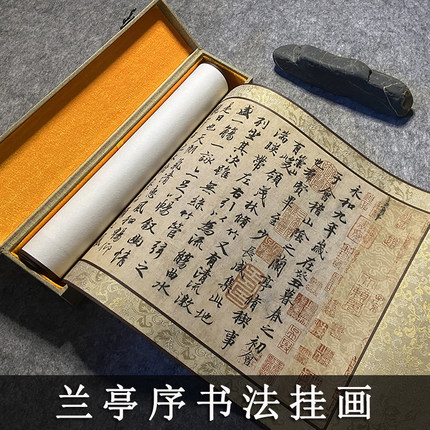 永和九年歲在癸丑暮春之初會
于會稽山陰之蘭亭脩稧事
也羣賢畢至少長咸集此地
有峻領茂林脩竹又有清流激
湍暎帶左右引以為流觴曲水
列坐其次雖無絲竹管弦之
盛一觴一詠亦足以暢敘幽情
是日也天朗氣清惠風和暢仰
兰亭序书法挂画